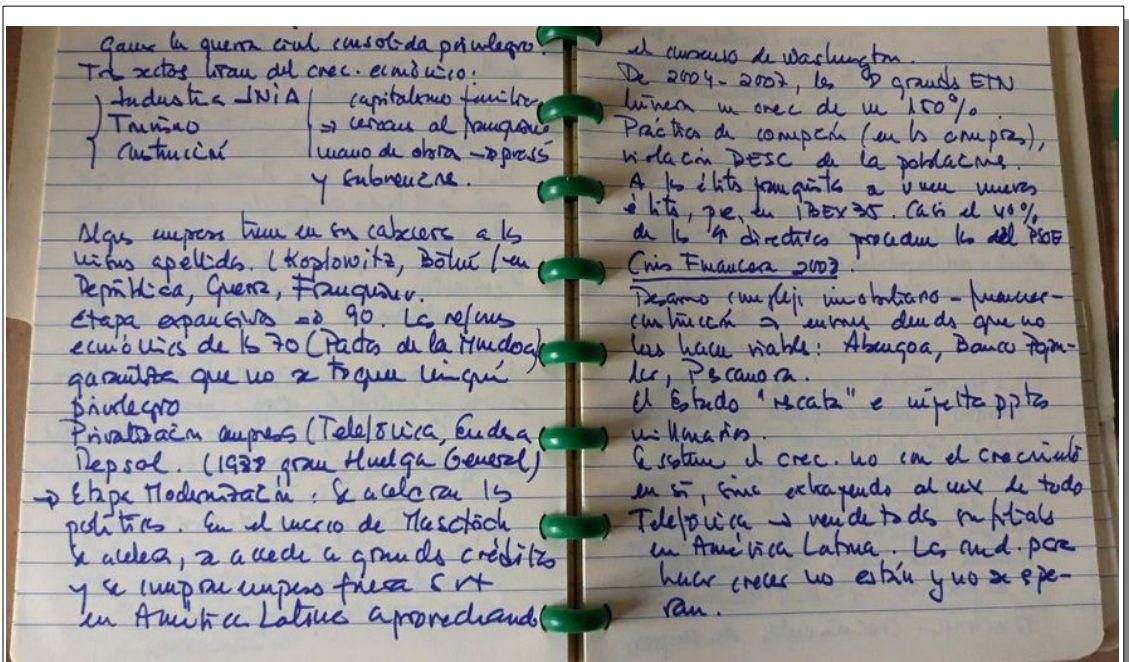 Ganar la guerra civil consolida privilegio.
Tres sectores tiran del crec. económico:
Industria INIA
Turismo
Construcción
capitalismo familiar
⇒ cercano al franquismo
mano de obra → presos
y subvencione.
Algs empresas tienen en su cabecera a los
mismos apellidos. (Koplowitz, Botín) en
República, Guerra, Franquismo.
etapa expansiva ⇒ 90. Las reformas
económicas de los 70 (Pactos de la Moncloa)
garantiza que no se toque ningún
privilegio
Privatización empresas (Telefónica, Endesa
Repsol. (1988 gran Huelga General)
→ Etapa Modernización: Se aceleran las
políticas. En el marco de Maschtrich
se acelera, se accede a grandes créditos
y se compran empresas fuera
en América Latina aprovechando
el consenso de Washington.
De 2004-2007, las grandes ETN
tuvieron un crec de un 150%.
Práctica de corrupción (en las compras),
violación DESC de la poblacine.
A las élites franquistas se unen nuevas
élites, p.e, en IBEX35. Casi el 40%
de los directivos proceden los del PSOE
Crisis Financiera 2007.
Desarrollo complejo inmobiliario-financiero-
construcción → enormes deudas que no
las hace viable: Abengoa, Banco Popu-
lar, Pescanova.
El Estado "rescata" e inyecta pptos
millonarios.
Se sostiene el crec. no con el crecimiento
en sí, sino extrayendo al max de todo
Telefónica → vende todas sus filials
en América Latina. Las cond. para
hacer crecer no están y no se espe-
ran.